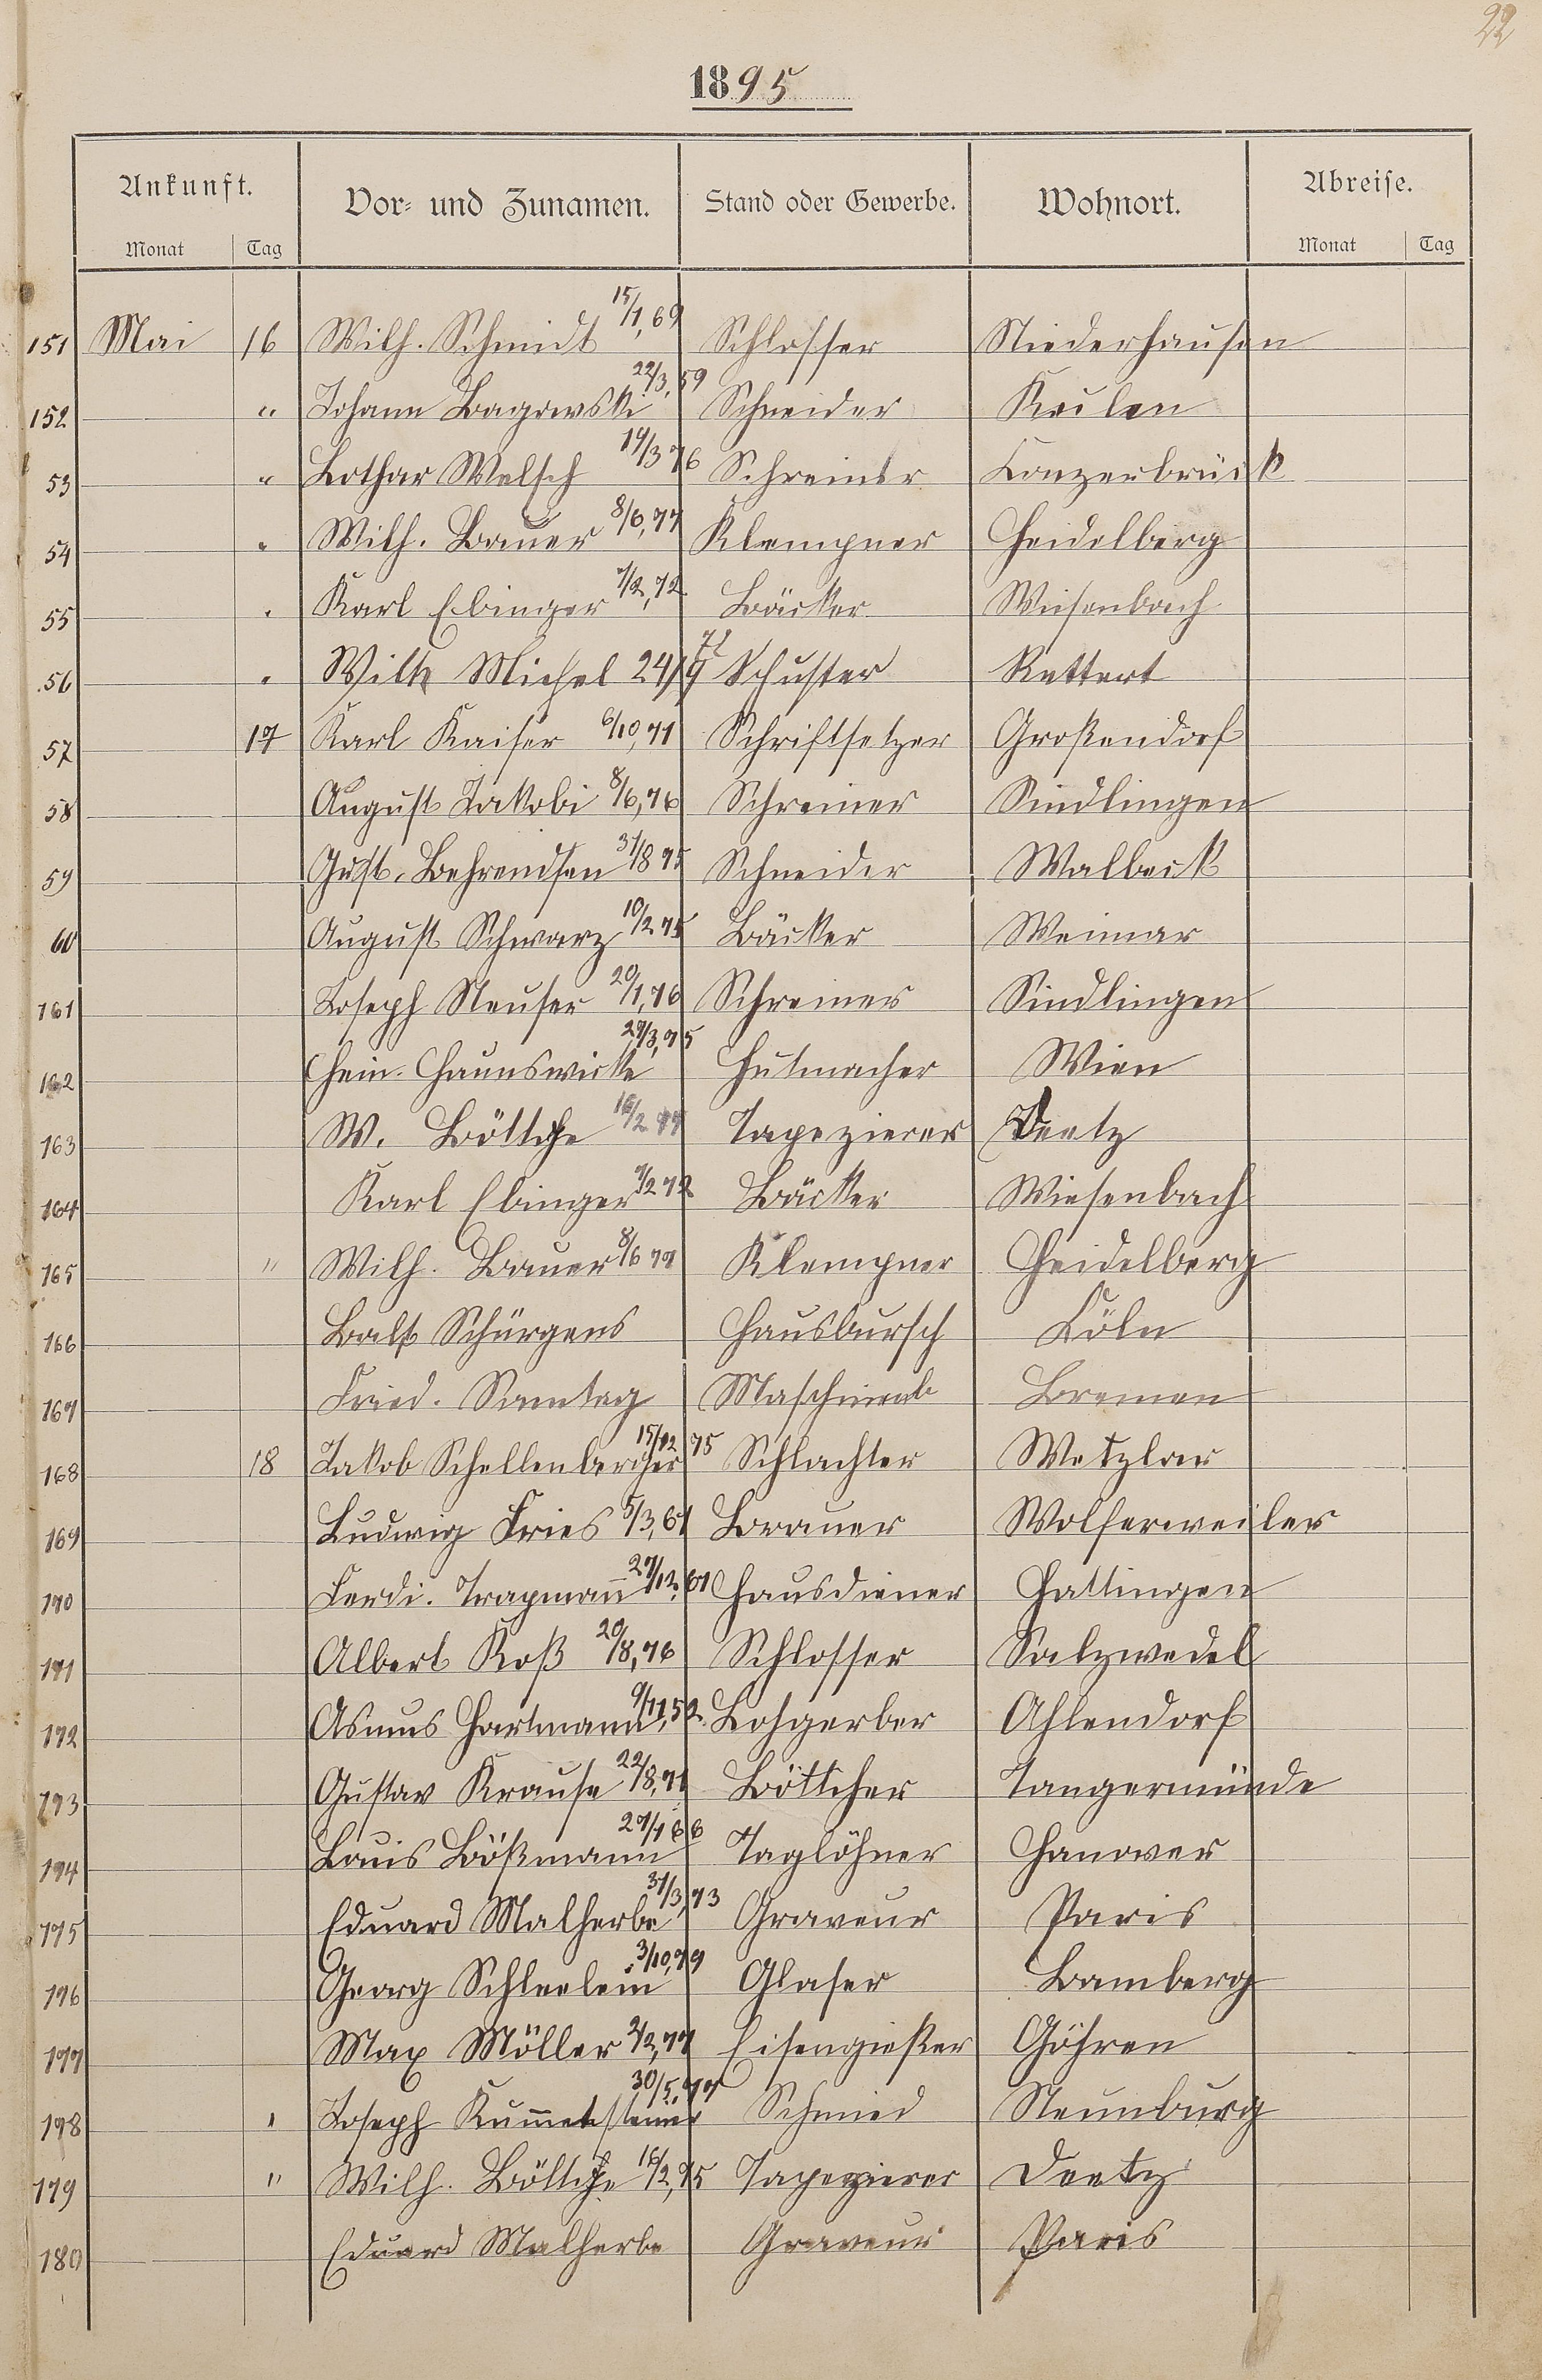 22
1895
Ankunft. Vor- und Zunamen. Stand oder Gewerbe. Wohnort. Abreise.
Monat Tag Monat Tag
151 Mai 16 Wilh. Schmidt 15/1, 69 Schlosser Niederhausen
152 " Johann Bagowski 22/3, 59 Schneider
53 " Lothar Welsch 14/3 76 Schreiner Conzerbrück
54 " Wilh. Bauer 8/6, 77 Klempner Heidelberg
55 " Karl Ebinger 7/2, 72 Bäcker Wiesenbach
56 " Wilh Michel 24/9 72 Schuster Rettert
57 17 Karl Kaiser 6/10, 71 Schriftsetzer Großendorf
58 August Jakobi 8/6, 76 Schreiner Sindlingen
59 Gust. Behrendsen 31/8 75 Schneider Walbeck
60 August Schwarz 10/2 75 Bäcker Weimar
161 Joseph Neuser 20/1, 76 Schreiner Sindlingen
162 Hein. 27/3, 75 Hutmacher Wien
163 W. Böttche 16/2 Tapezierer Deetz
164 Karl Ebinger 7/2 72 Bäcker Wiesenbach
165 " Wilh. Bauer 8/6 77 Klempner Heidelberg
166 Balt Schürgens Hausbursch Cöln
167 Fried. Sonntag Maschinenb Bremen
168 18 Jakob Schellenberger 15/12 75 Schlachter Wetzlar
169 Ludwig Fries 5/3, 61 Brauer Wolferweiler
170 Ferdi. Trapmann 27/12, 61 Hausdiener Hattingen
171 Albert Roß 20/8, 76 Schlosser Salzwedel
172 Asmus Hartmann 9/11, 52 Lohgerber Ahlendorf
173 Gustav Krause 22/8, 71 Böttcher Tangermünde
174 Louis Bößmann 27/1 66 Taglöhner Hanover
175 Eduard Malherbe 31/3, 73 Graveur Paris
176 Georg Schleelein 3/10, 79 Glaser Bamberg
177 Max Möller 2/2, 77 Eisengießer Göhren
178 " Joseph 30/5, 77 Schmied Neunburg
179 " Wilh. Böttche 16/2, 75 Tapezierer Deetz
180 Eduard Malherbe Graveur Paris